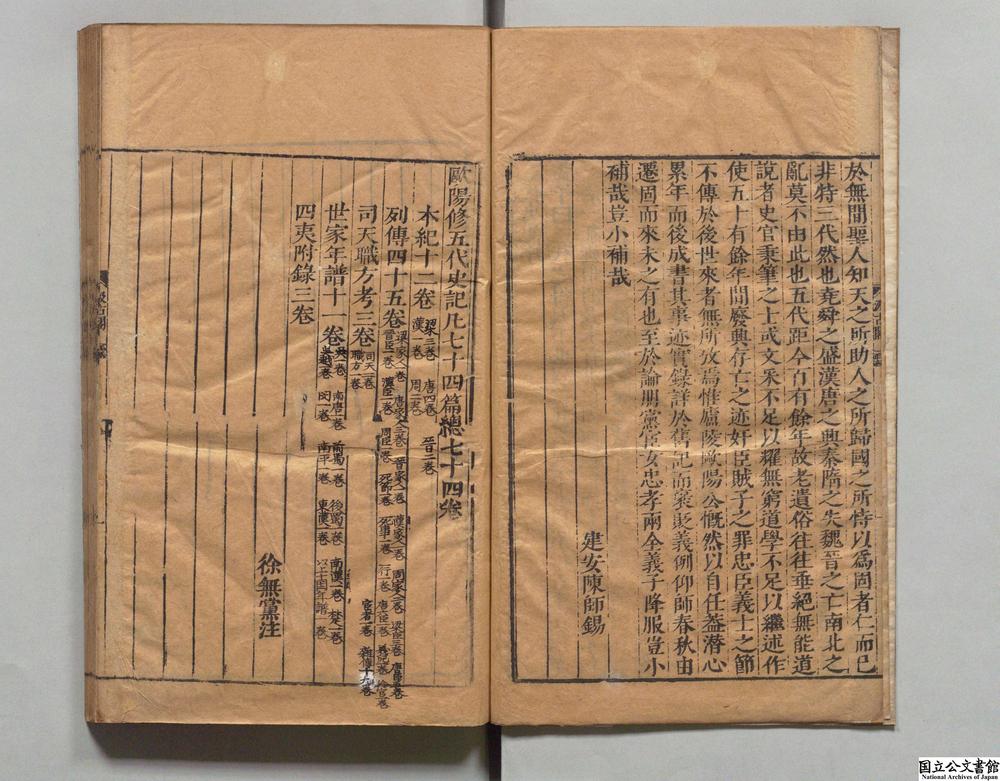 於無聞聖人知天之所助人之所歸國之所恃以爲固者仁而已
非特三代然也堯舜之盛漢唐之興秦隋之失魏晉之亡南北之
亂莫不由此也五代距今百有餘年故老遺俗往往垂絕無能道
說者史官秉筆之士或文采不足以耀無窮道學不足以繼述作
使五十有餘年間廢興存亡之迹奸臣賊子之罪忠臣義士之節
不傳於後世來者無所攷焉惟廬陵歐陽公慨然以自任葢潛心
累年而後成書其事迹實錄詳於舊記而襃貶義例仰師春秋由
遷固而來未之有也至於論朋黨宦女忠孝兩全義子降服豈小
補哉豈小補哉
建安陳師錫
歐陽修五代史記凡七十四篇總七十四卷
本紀十二卷 梁三卷 唐四卷 晉二卷
漢一卷 周二卷
列傳四十五卷 梁家人一卷 唐家人三卷 晉家人一卷 漢家人一卷 周家人一卷 梁臣三卷 唐臣五卷
晉臣一卷 漢臣一卷 周臣一卷 死節一卷 死事一卷 一行一卷
宦者一卷 雜傳十九卷
司天職方考三卷 司天二卷
職方一卷
世家年譜十一卷 吳一卷 南唐一卷 前蜀一卷 後蜀一卷 南漢一卷 楚一卷
吳越一卷 閩一卷 南平一卷 東漢一卷 以上十國年譜一卷
四夷附錄三卷
徐無黨注
国立公文書館
National Archives of Japan